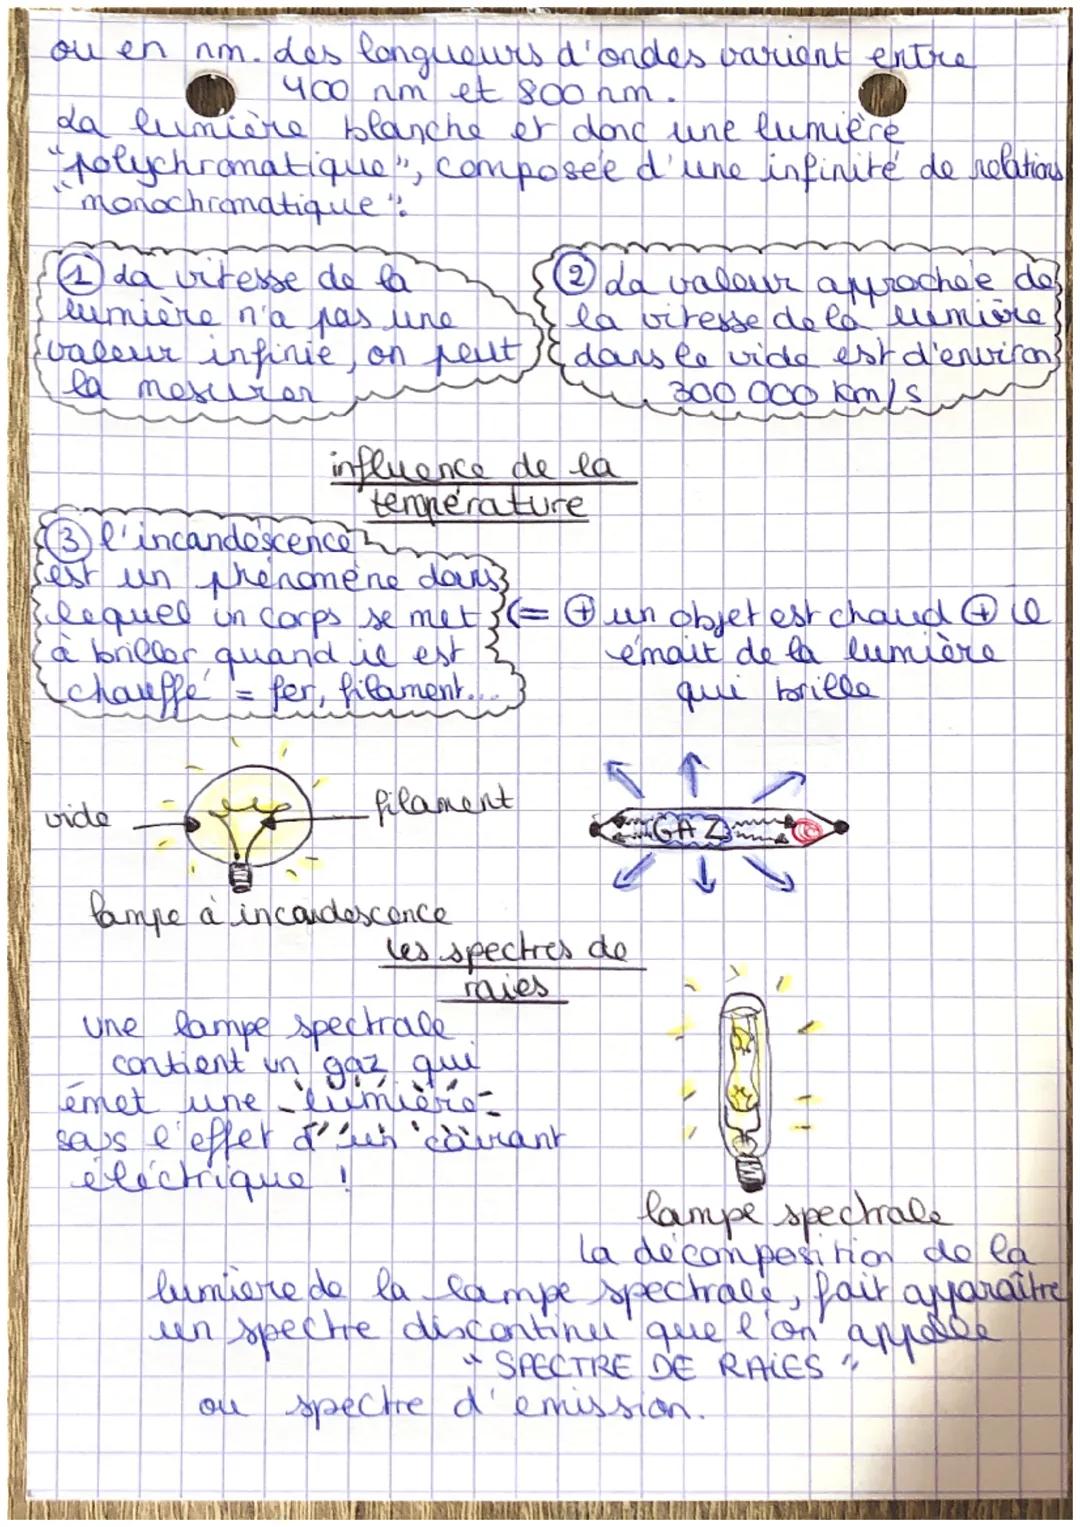 ou en nm. des longueurs d'ondes varient entre
400 nm et 800 nm.
La lumière blanche et donc une lumière
"polychromatique", composée d'une infinité de relations
"monochromatique".
① La vitesse de la
lumière n'a pas une
valeur infinie, on peut
la mesurer
② La valeur approchée de
la vitesse de la lumière
dans le vide est d'environ
300 000 km/s
influence de la
température
③ l'incandescence
est un phénomène dans
lequel un corps se met
à briller quand il est
chauffé = fer, filament...
(= ⊕ un objet est chaud ⊕ il
émait de la lumière
qui brille
vide
filament
GAZ
lampe à incandescence
les spectres de
raies
une lampe spectrale
contient un gaz qui
émet une lumière
sous l'effet d'un courant
éléctrique !
lampe spectrale
La décomposition de la
lumière de la lampe spectrale, fait apparaître
un spectre discontinu que l'on appelle
"SPECTRE DE RAIES"
ou spectre d'émission.